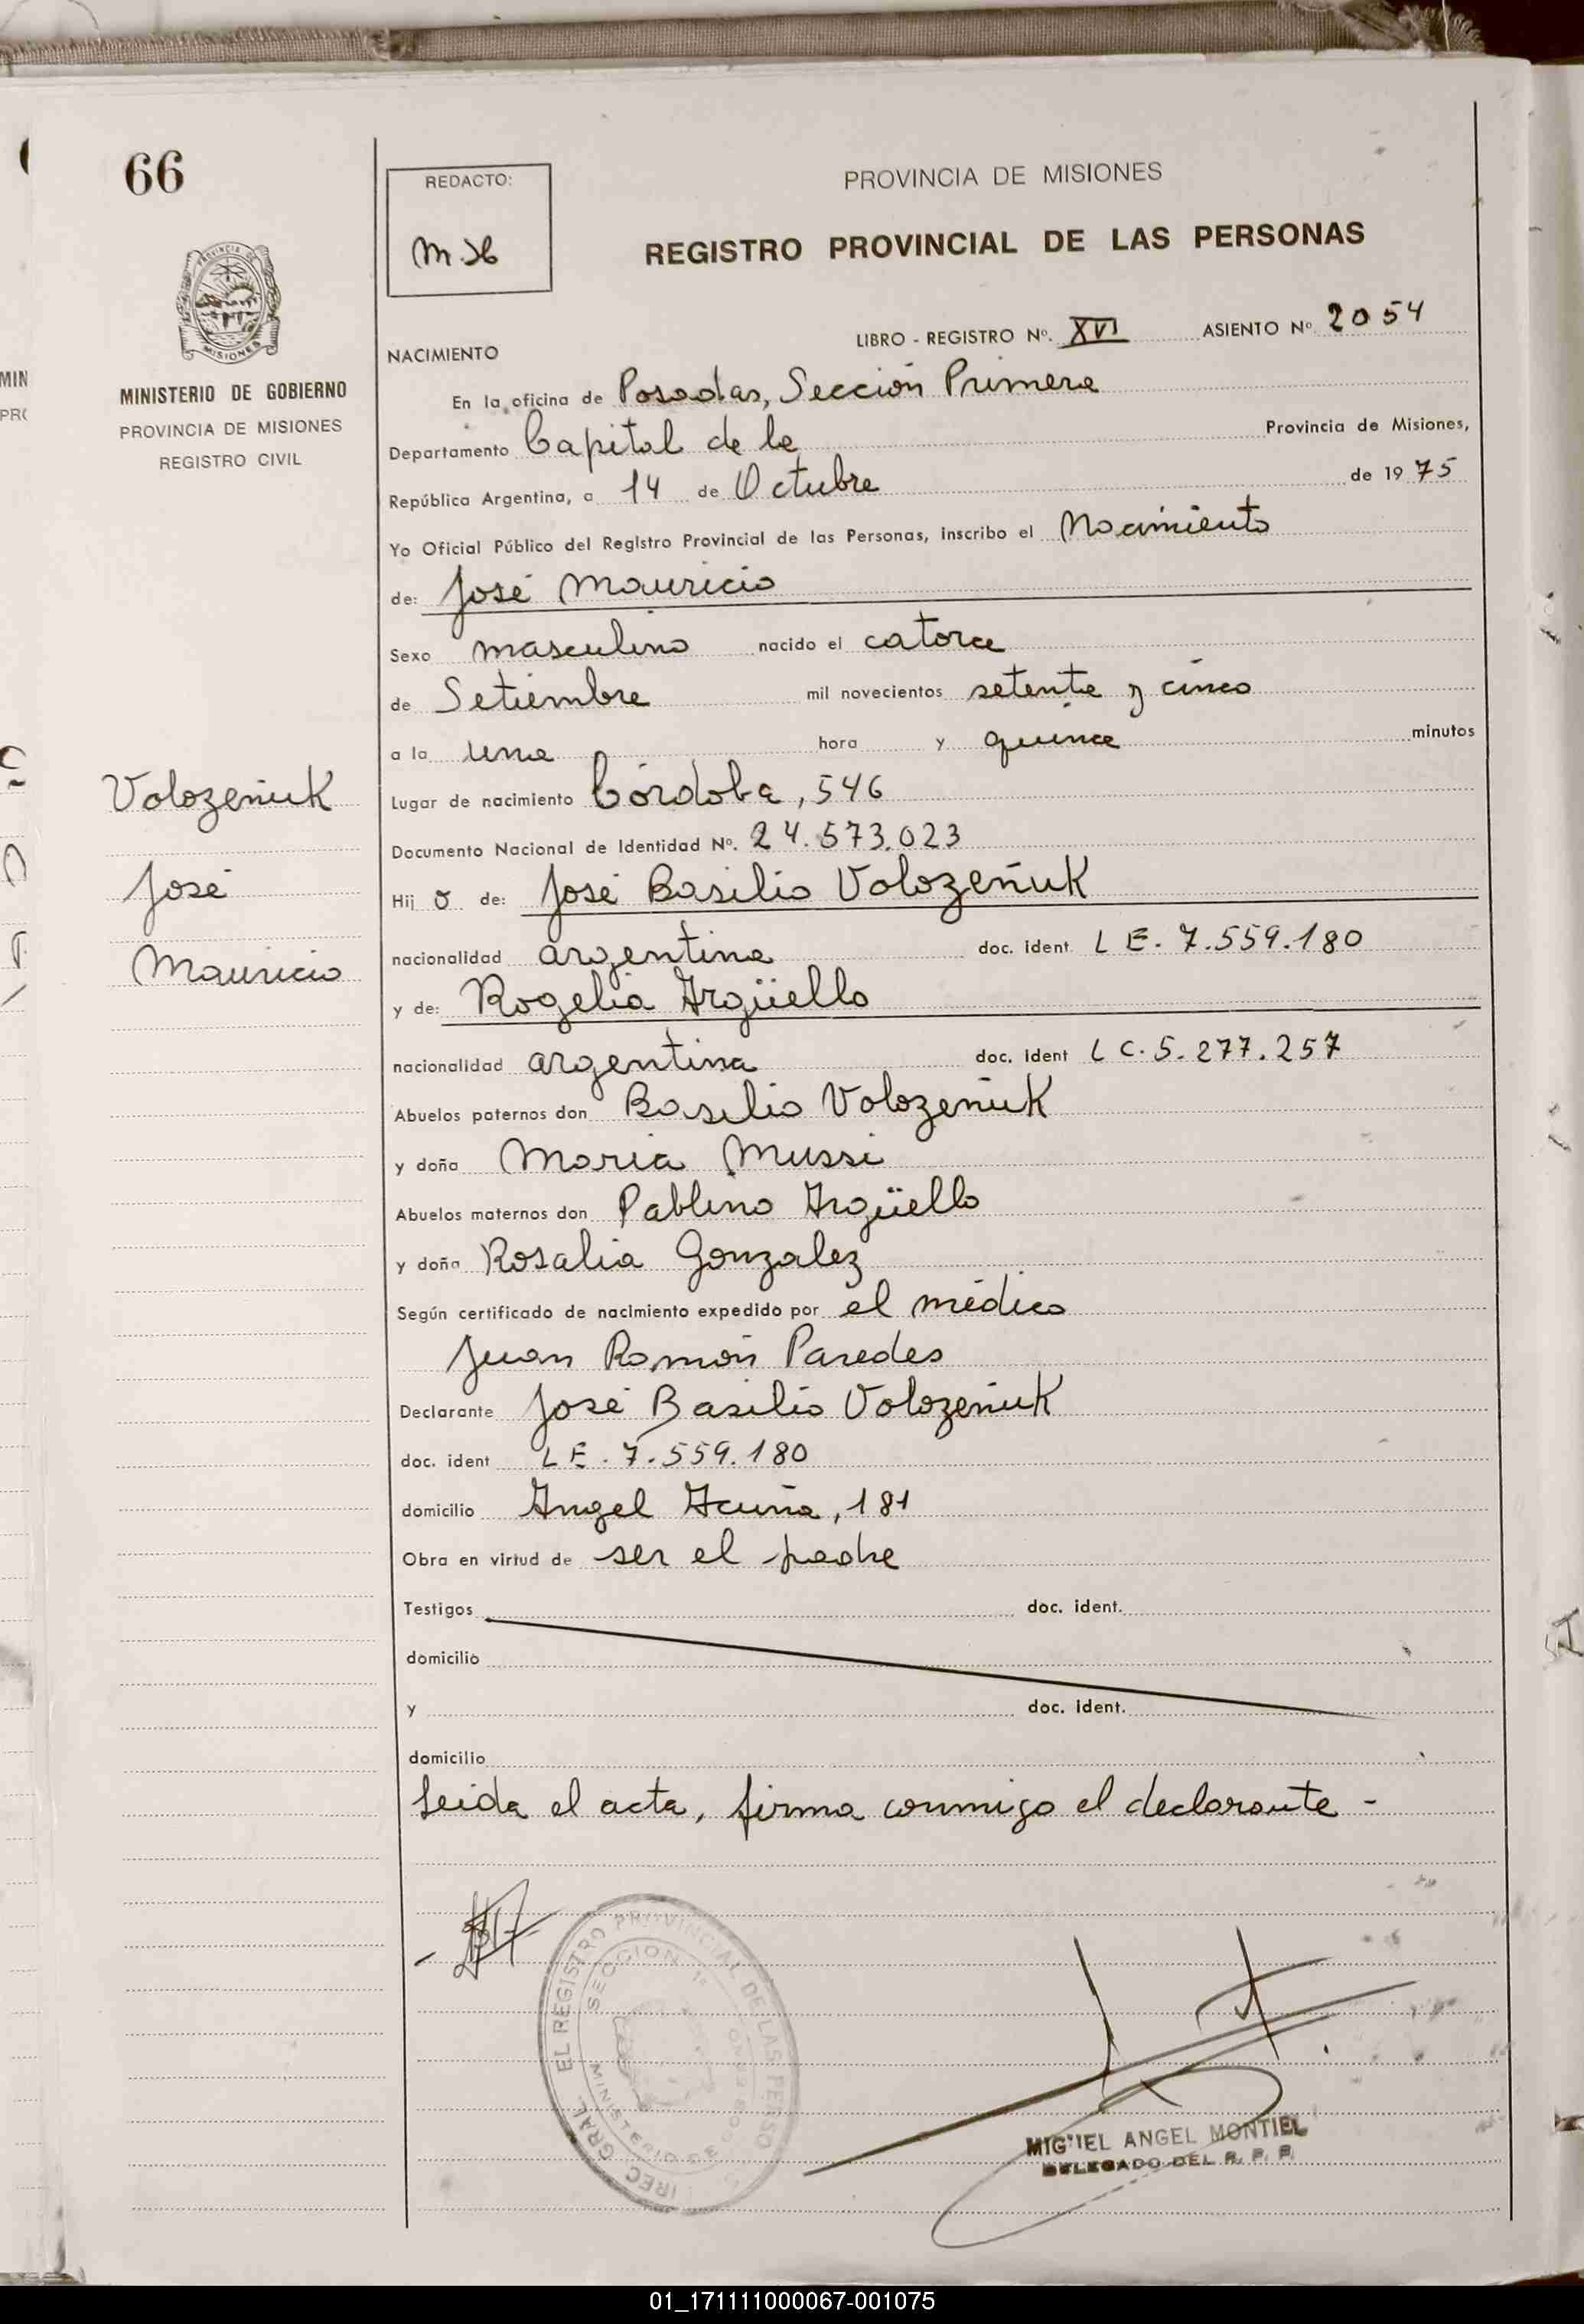 66
PROVINCIA
MISIONES
MINISTERIO DE GOBIERNO
PROVINCIA DE MISIONES
REGISTRO CIVIL
Volozeñuk
José
Mauricio
REDACTO:
PROVINCIA DE MISIONES
REGISTRO PROVINCIAL DE LAS PERSONAS
LIBRO - REGISTRO Nº. XVI ASIENTO Nº 2054
NACIMIENTO
En la oficina de Posadas, Sección Primera
Departamento Capital de la Provincia de Misiones,
República Argentina, a 14 de Octubre de 1975
Yo Oficial Público del Registro Provincial de las Personas, inscribo el Nacimiento
de: José Mauricio
Sexo masculino nacido el catorce
de Setiembre mil novecientos setenta y cinco
a la una hora y quince minutos
Lugar de nacimiento Córdoba, 546
Documento Nacional de Identidad Nº. 24.573.023
Hijo de: José Basilio Volozeñuk
nacionalidad argentina doc. ident LE. 7.559.180
y de: Rogelia Argüello
nacionalidad argentina doc. ident LC. 5.277.257
Abuelos paternos don Basilio Volozeñuk
y doña Maria Mussi
Abuelos maternos don Pablino Argüello
y doña Rosalia Gonzalez
Según certificado de nacimiento expedido por el médico
Juan Ramón Paredes
Declarante José Basilio Volozeñuk
doc. ident LE. 7.559.180
domicilio Angel Acuña, 181
Obra en virtud de ser el padre
Testigos doc. ident.
domicilio
y doc. ident.
domicilio
Leida el acta, firma conmigo el declarante -
GRAL. EL REGISTRO PROVINCIAL DE LAS PERSO
SECCION 1ª
MINISTERIO DE GOBIERNO
MIGUEL ANGEL MONTIEL
DELEGADO DEL R. P. P.
01_171111000067-001075